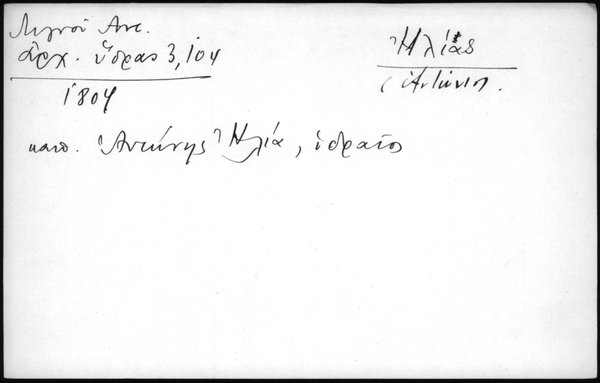 Λιγνοῦ Αντ.
ἀρχ. Ὕδρας 3, 104
1804
Ἠλίας
Ἀντώνιος.
καπ. Ἀντώνης Ἠλία, ὑδραῖος